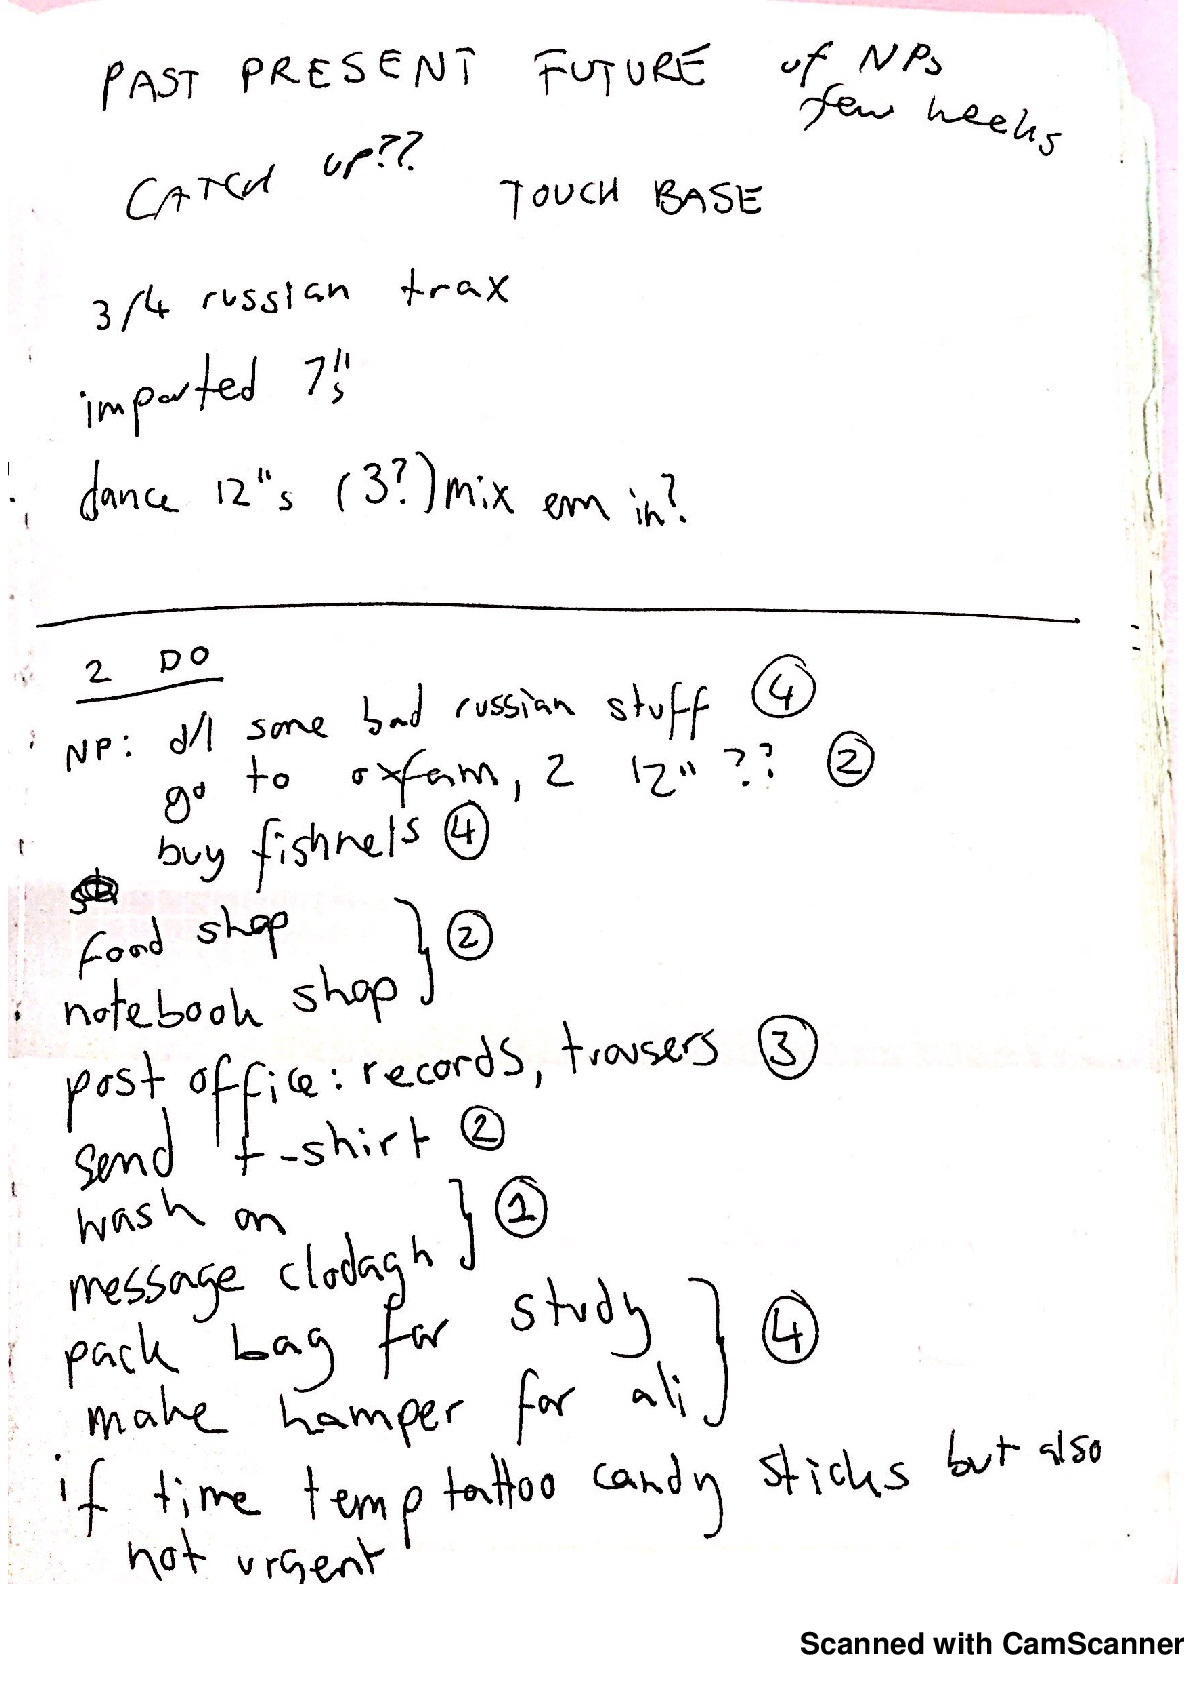 PAST PRESENT FUTURE of NPs
few weeks
CATCH UP??
TOUCH BASE
3/4 russian trax
imported 7"s
dance 12"s (3?) mix em in?
2 DO
NP: d/l some bad russian stuff 4
go to oxfam, 2 12" ?? 2
buy fishnets 4
food shop
notebook shop } 2
post office: records, trousers 3
send t-shirt 2
wash on
message clodagh } 1
pack bag for study
make hamper for ali } 4
if time temp tattoo candy sticks but also
not urgent
Scanned with CamScanner